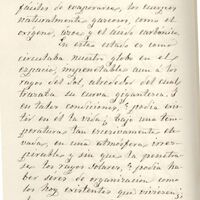 fáciles de evaporarse, los cuerpos
naturalmente gaseosos, como el
oxígeno, azoe y el ácido carbónico.
En este estado es como
circulaba nuestro globo en el
espacio, impenetrable aun a los
rayos del Sol, alrededor del cual
trazaba su curva gigantesca. Y
en tales condiciones, podía exis-
tir en él la vida; bajo una tem-
peratura tan excesivamente ele-
vada, en una atmósfera irres-
pirable y sin que la penetra-
se los rayos solares, podía ha-
ber seres de organización como
los hoy existentes que vivieran;